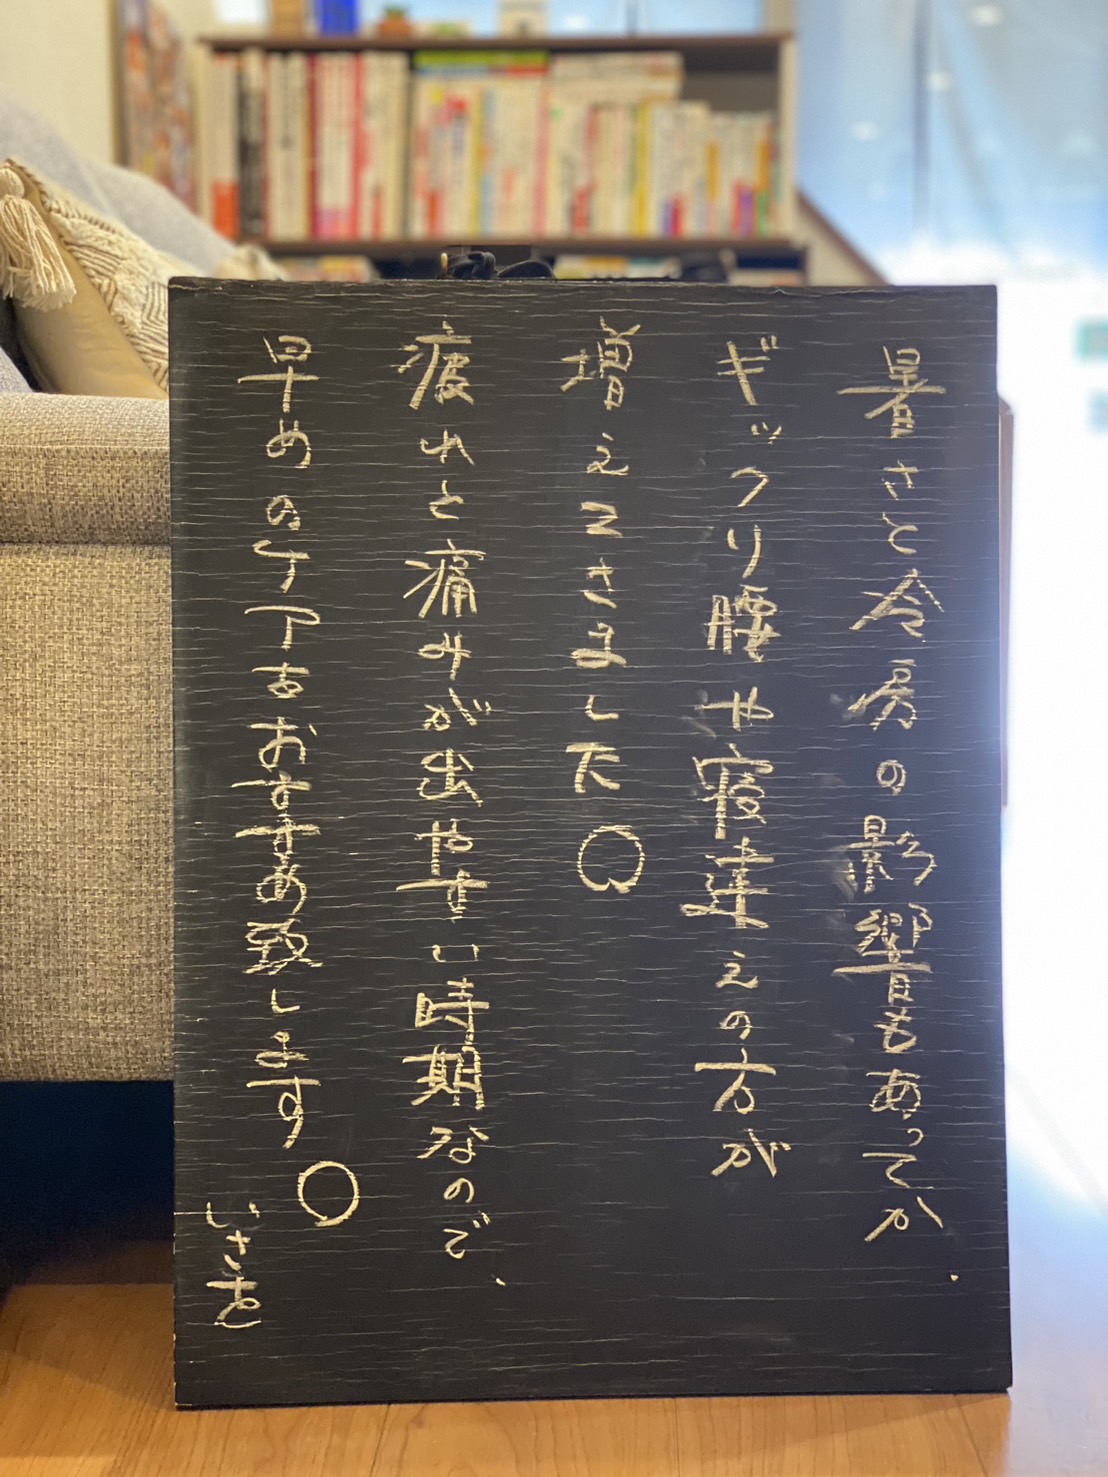 暑さと冷房の影響もあってか、
ギックリ腰や寝違えの方が
増えてきました。
疲れと痛みが出やすい時期なので、
早めのケアをおすすめ致します。
いさを